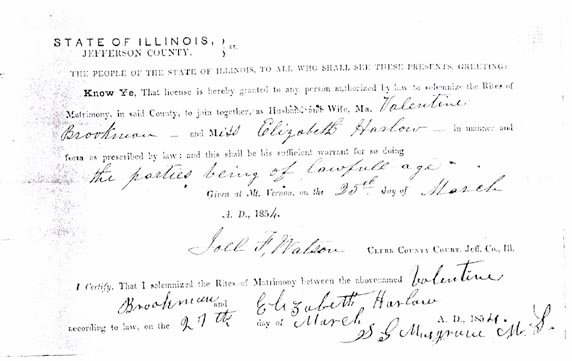 STATE OF ILLINOIS, } ss.
JEFFERSON COUNTY.
THE PEOPLE OF THE STATE OF ILLINOIS, TO ALL WHO SHALL SEE THESE PRESENTS, GREETING:
Know Ye, That license is hereby granted to any person authorized by law to solemnize the Rites of
Matrimony, in said County, to join together, as Husband and Wife, Mr. Valentine
Brookman — and Miss Elizabeth Harlow — in manner and
form as prescribed by law; and this shall be his sufficient warrant for so doing
the parties being of lawfull age
Given at Mt. Vernon, on the 25th day of March
A. D., 1854.
Joel F, Watson CLERK COUNTY COURT, Jeff. Co., Ill.
I Certify, That I solemnized the Rites of Matrimony between the abovenamed Valentine
Brookman and Elizabeth Harlow
according to law, on the 27th day of March A. D., 1854.
S G Musgrave M. G.